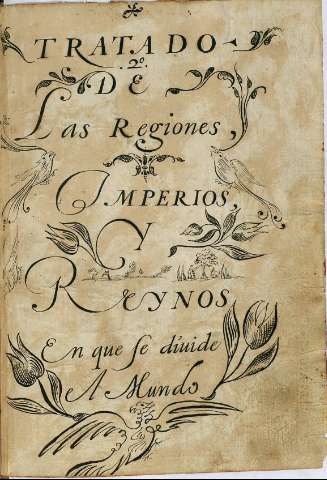 TRATADO
2º
DE
Las Regiones,
IMPERIOS,
Y
REYNOS
En que se diuide
el Mundo